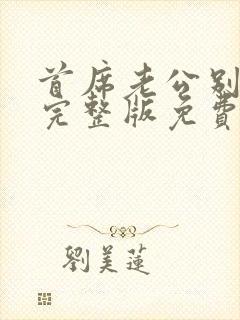 首席老公别
完整版免費
劉美蓮